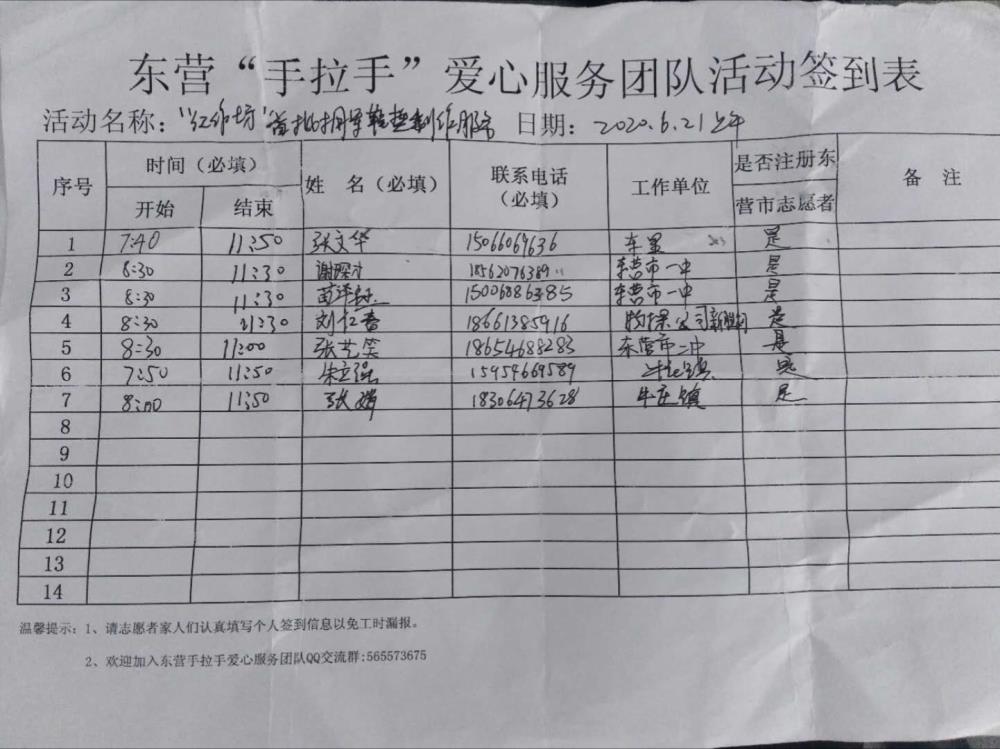 东营“手拉手”爱心服务团队活动签到表
活动名称：“红作坊”首批拥军鞋垫制作服务 日期：2020.6.21上午
序号 时间（必填） 姓 名（必填） 联系电话（必填） 工作单位 是否注册东营市志愿者 备 注
开始 结束
1 7:40 11:50 张文华 15066069636 是
2 8:30 11:30 18562076389 东营市一中 是
3 8:30 11:30 15006886385 东营市一中 是
4 8:30 11:30 刘仁春 18661385916 物探公司 是
5 8:30 11:00 张艺笑 18654688283 东营市二中 是
6 7:50 11:50 朱立强 15954669589 牛庄镇 是
7 8:00 11:50 张 18306473628 牛庄镇 是
8
9
10
11
12
13
14
温馨提示：1、请志愿者家人们认真填写个人签到信息以免工时漏报。
2、欢迎加入东营手拉手爱心服务团队QQ交流群:565573675